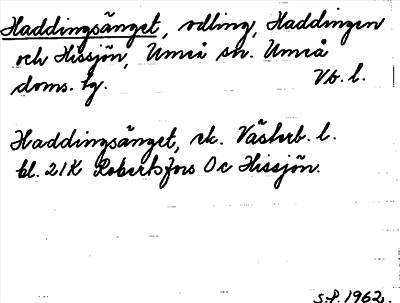 Haddingsänget, odling, Haddingen
och Hissjön, Umeå sn. Umeå
doms. tg. Vb. l.
Haddingsänget, ek. Västerb. l.
bl. 21K Robertsfors 0c Hissjön.
S.P. 1962.